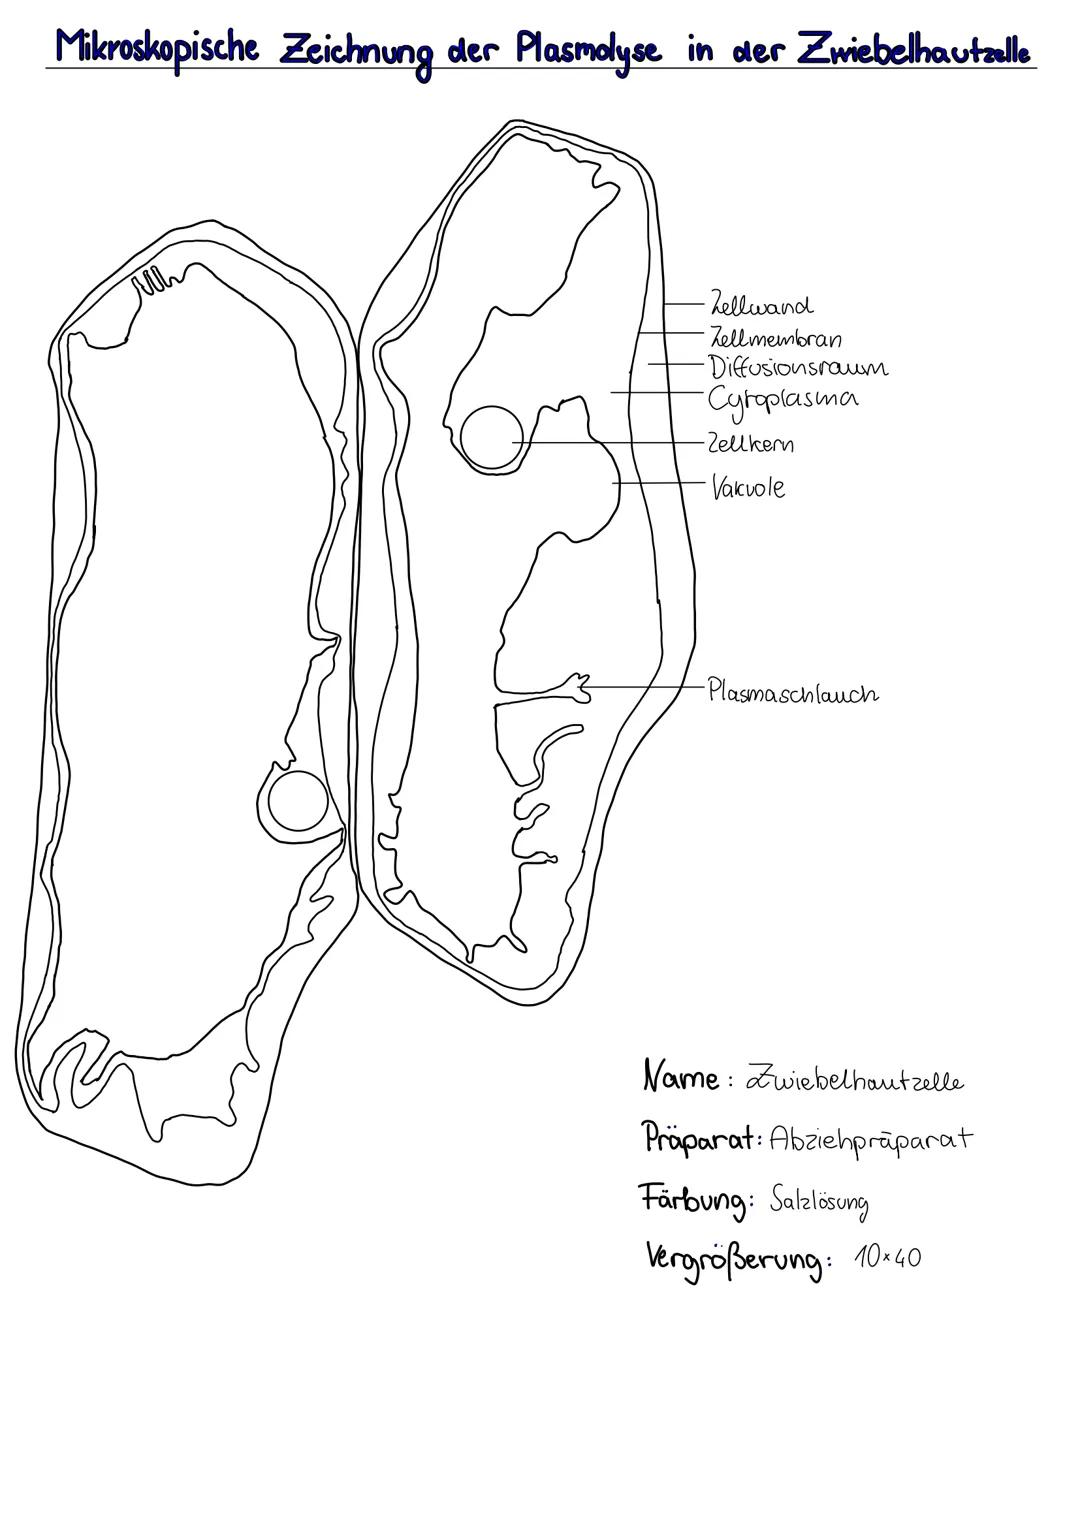 Mikroskopische Zeichnung der Plasmolyse in der Zwiebelhautzelle
Zellwand
Zellmembran
Diffusionsraum
Cytoplasma
Zellkern
Vakuole
Plasmaschlauch
Name: Zwiebelhautzelle
Präparat: Abziehpräparat
Färbung: Salzlösung
Vergrößerung: 10×40